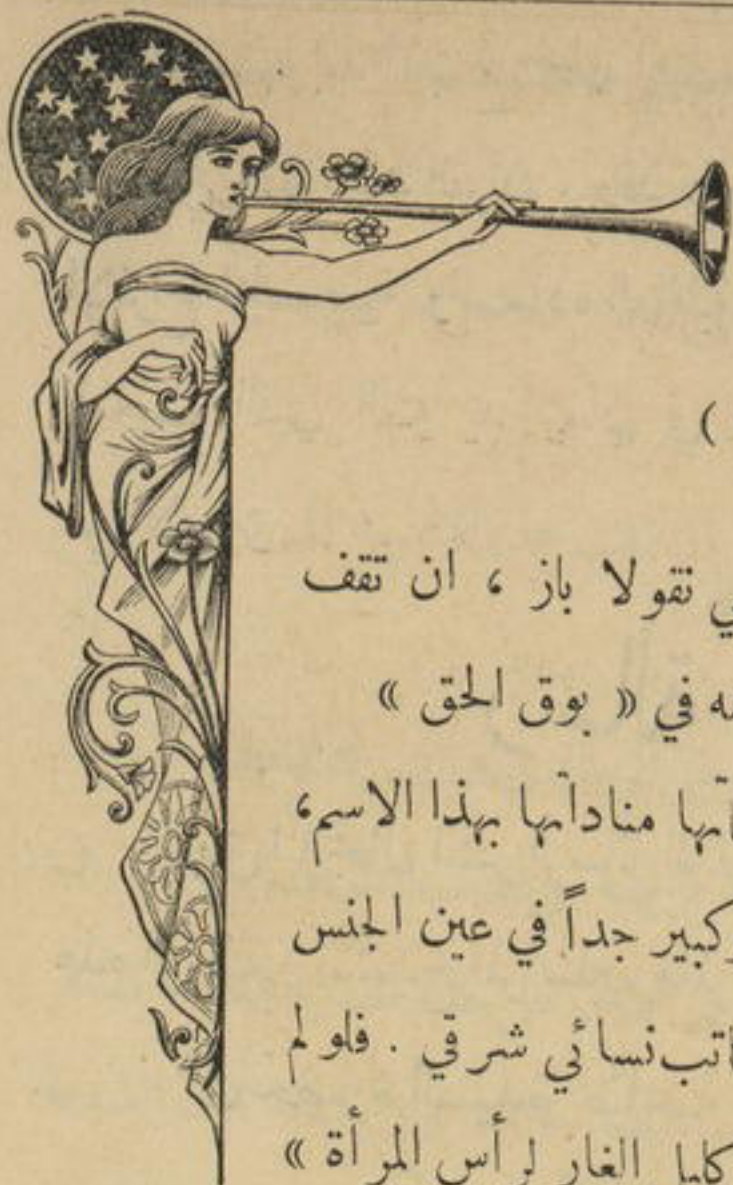 )
نقولا باز ، ان تقف
في « بوق الحق »
مناداتها بهذا الاسم،
كبير جداً في عين الجنس
نسائي شرقي . فلو لم
الغار لرأس المرأة »